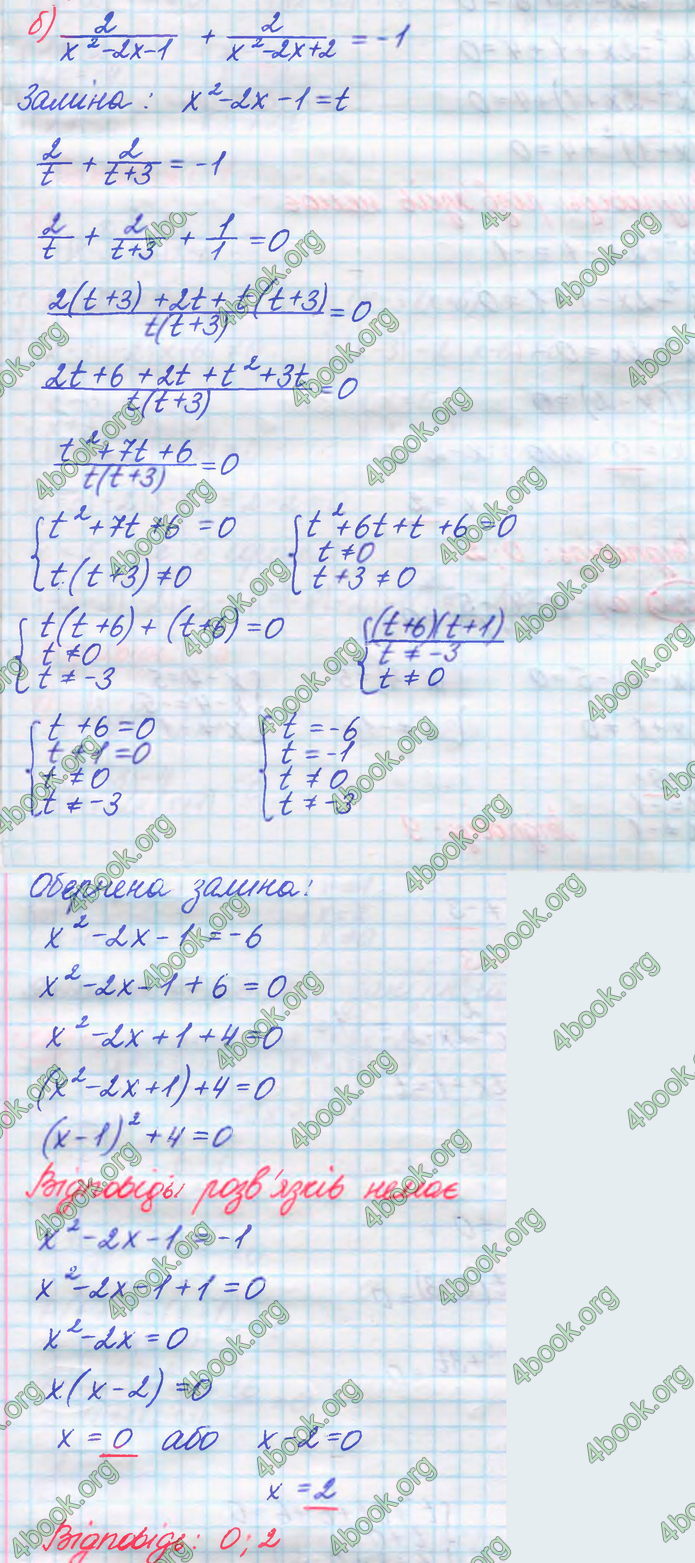 б) 2/(x²-2x-1) + 2/(x²-2x+2) = -1
Заміна: x²-2x-1=t
2/t + 2/(t+3) = -1
2/t + 2/(t+3) + 1/1 = 0
(2(t+3)+2t+t(t+3))/(t(t+3)) = 0
(2t+6+2t+t²+3t)/(t(t+3)) = 0
(t²+7t+6)/(t(t+3)) = 0
{ t²+7t+6=0 { t²+6t+t+6=0
t≠0
t.(t+3)≠0 t+3≠0
{ t(t+6)+(t+6)=0 { (t+6)(t+1)
t≠0 t≠-3
t≠-3 t≠0
{ t+6=0 { t=-6
t+1=0 t=-1
t≠0 t≠0
t≠-3 t≠-3
Обернена заміна:
x²-2x-1=-6
x²-2x-1+6=0
x²-2x+1+4=0
(x²-2x+1)+4=0
(x-1)²+4=0
Відповідь розв'язків немає
x²-2x-1=-1
x²-2x-1+1=0
x²-2x=0
x(x-2)=0
x=0 або x-2=0
x=2
Відповідь: 0;2
4book.org